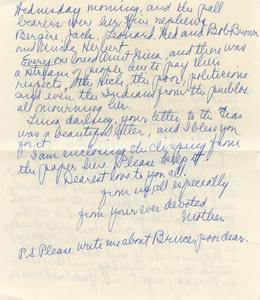 Wednesday morning, and the pall
bearers were her nephews
Bergere, Jack, Leonard, Ned and Bob Brown
and Uncle Herbert.
Everyone loved Aunt Nina, and there was
a stream of people here to pay their
respects, the rich, the poor, politicians
and even the Indians from the pueblos
all mourning her.
darling, your letter to the
was a beautiful letter, and I bless you
for it.
I am enclosing the clipping from
the paper here. Please keep it.
Dearest love to you all.
from us all especially
from your ever devoted
Mother.
P.S. Please write me about Bruce, poor dear.